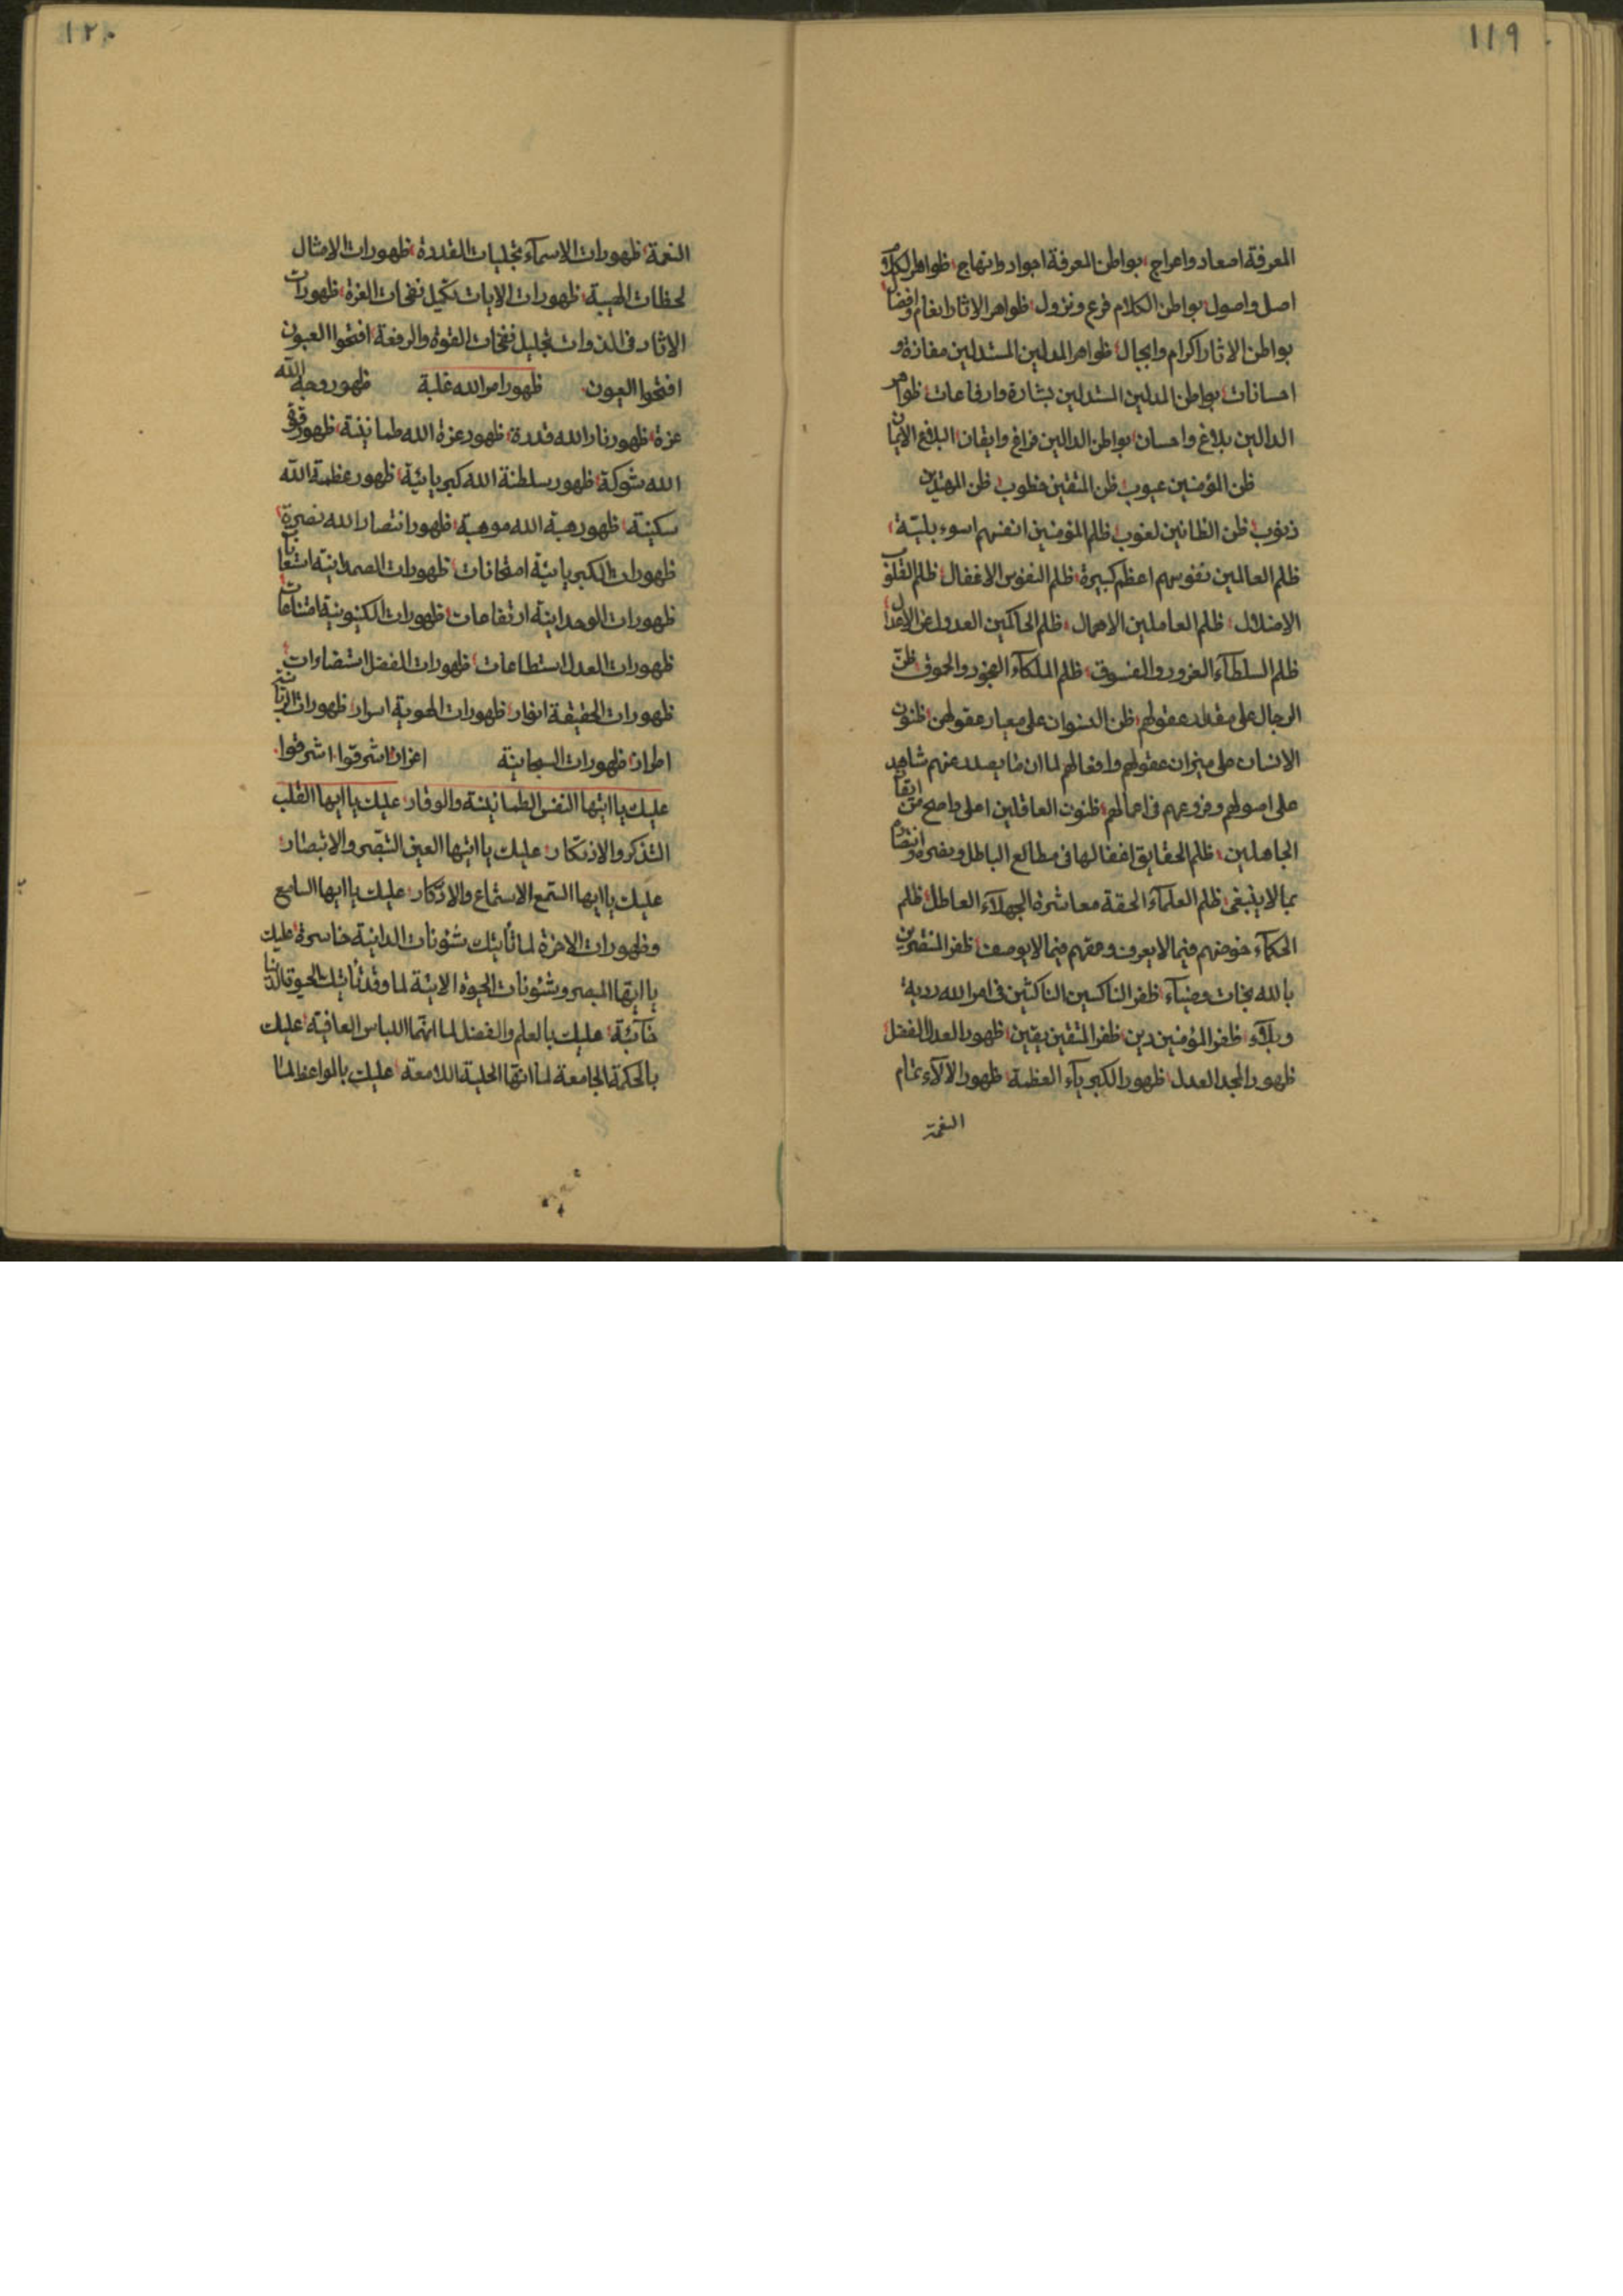 ١١٩
المعرفة اصعاد واعراج بواطن المعرفة اجواد وابتهاج ظواهر الكلام
اصل واصول بواطن الكلام فرع ونزول ظواهر الاثار انعام وافضال
بواطن الاثار اكرام واجمال ظواهر المدلين المستدلين مفازة و
احسانات بواطن المدلين المستدلين بشارة وارفاعات ظواهر
الدالين بلاغ واحسان بواطن الدالين فراغ وايقان البلاغ الايمان
ظن المؤمنين عيوب ظن المتقين خطوب ظن المهتدين
ذنوب ظن الظانين لغوب ظلم المؤمنين انفسهم اسوء بلية
ظلم العالمين نفوسهم اعظم كبيرة ظلم النفوس الاغفال ظلم القلوب
الاضلال ظلم العاملين الاهمال ظلم الحاكمين العدول عن الاعدال
ظلم السلطآء الغرور والفسوق ظلم الملكآء الفجور والحوق ظن
الرجال على مقدار عقولهم ظن النسوان على معيار عقولهن ظنون
الانسان على ميزان عقولهم وافعالهم لما ان ما يصدر عنهم شاهد
على اصولهم وفروعهم فى اعمالهم ظنون العاقلين اعلى واصلح من ايقان
الجاهلين ظلم الحقايق اغفالها فى مطالع الباطل ونصره وانتصارهم
بما لا ينبغى ظلم العلمآء الحقة معاشرة الجهلآء العاطل ظلم
الحكمآء خوضهم فيما لا يعرف وعمقهم فيما لا يوصف ظفر المنتصرين
بالله نجات وضيآء ظفر الناكسين الناكثين فى امر الله ردية
وبلآء ظفر المؤمنين دين ظفر المتقين يقين ظهور العدل الفضل
ظهور المجد العدل ظهور الكبريآء العظمة ظهور الآلآء تمام
النعمة
١٢٠
النعمة ظهورات الاسمآء تجليات القدرة ظهورات الامثال
لحظات الهيبة ظهورات الايات تكميل نفحات العزة ظهورات
الاثار فى الذوات تجليل نفحات القوة والرفعة افتحوا العيون
افتحوا العيون ظهور امر الله غلبة ظهور وجه الله
عزة ظهور نار الله قدرة ظهور عزة الله طمانينة ظهور قوة
الله شوكة ظهور سلطنة الله كبريائية ظهور عظمة الله
سكينة ظهور هبة الله موهبة ظهور انتصار الله نصرة
ظهورات الكبريائية امتحانات ظهورات الصمدانية
ظهورات الوحدانية ارتفاعات ظهورات الكينونية امتناعات
ظهورات العدل استطاعات ظهورات الفضل استضاءات
ظهورات الحقيقة انوار ظهورات الهوية اسرار ظهورات الربانية
اطراز ظهورات السبحانية اعزاز اشرقوا اشرقوا
عليك يا ايتها النفس الطمانينة والوقار عليك يا ايها القلب
التذكر والاذتكار عليك يا ايتها العين التبصر والابتصار
عليك يا ايها السمع الاستماع والاذكار عليك يا ايها السامع
وظهورات الاخرة لما تأتيك شئونات الدانية خاسرة عليك
يا ايها المبصر وشئونات الحيوة الاتية لما وقد تأتيك الحيوة الدنيا
خائبة عليك بالعلم والفضل لما انهما اللباس العافية عليك
بالحكمة الجامعة لما انها الحلية اللامعة عليك بالمواعظ لما